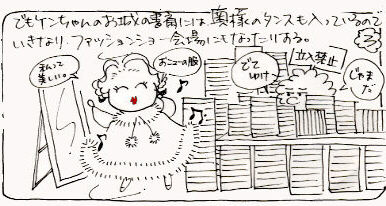 でもケンちゃんのお城の書斎には、奥様のタンスも入っているので
いきなり、ファッションショー会場にもなったりある。
私って
美しい。
おニューの服
でて
ゆけ
立入禁止
じゃま
だ